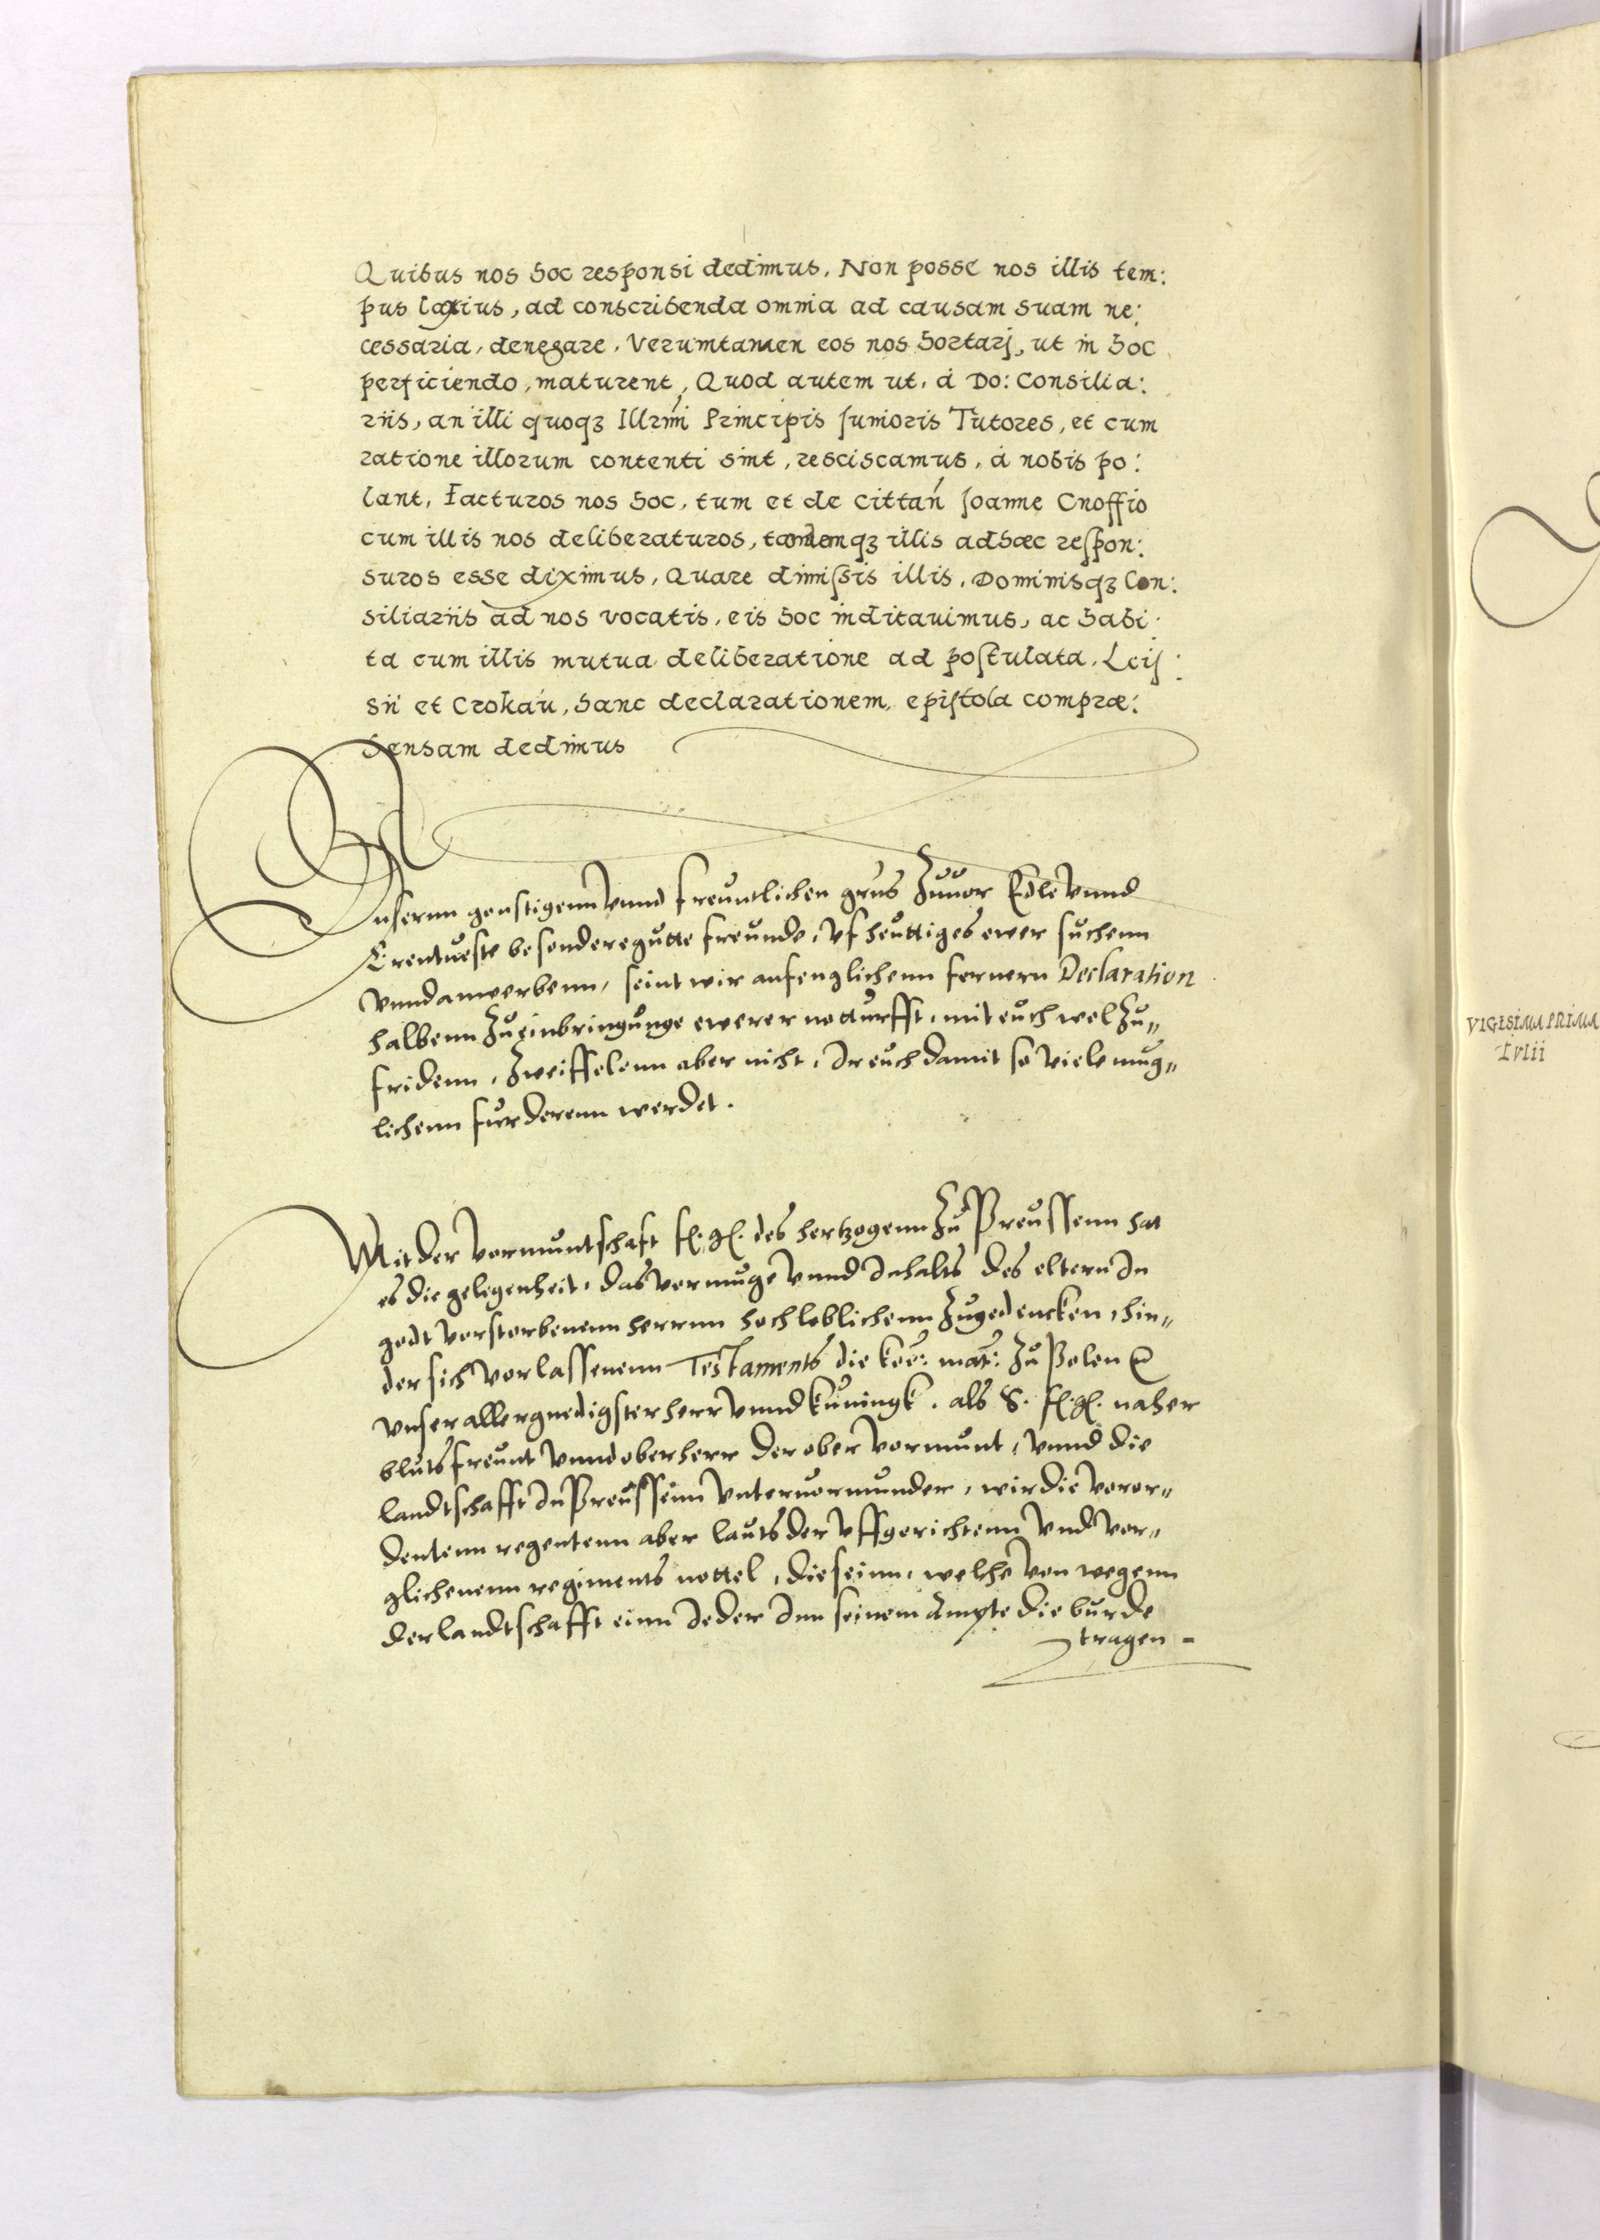 Quibus nos hoc responsi dedimus, Non posse nos illis tem:
pus laxius, ad conscribenda omnia ad causam suam ne:
cessaria, denegare, Verumtamen eos nos hortarj, ut in hoc
perficiendo, maturent, Quod autem ut, á Do: Consilia:
riis, an illi quoqꝫ Illrmi Principis Junioris Tutores, et cum
ratione illorum contenti sint, resciscamus, á nobis po:
lant, Facturos nos hoc, tum et de Cittań Joanne Cnoffio
cum illis nos deliberaturos, tandemqꝫ illis adhæc respon:
suros esse diximus, Quare dimissis illis, Dominisqꝫ Con:
siliariis ad nos vocatis, eis hoc inditauimus, ac habi:
ta cum illis mutua deliberatione ad postulata, Leis:
sii et Crokaú, hanc declarationem, epistola compræ:
hensam dedimus
Unsernn gonstigenn vnnd freuntlichen grus Zuuor Edle vnnd
Erentueste besondere gutte freunde, vf heuttiges ewer suchenn
vnnd anwerbenn, seint wir anfenglichenn fernern Declaration
halbenn Zu einbringunge ewerer notturfft, mit euch wol Zu„
fridenn, Zweiffelenn aber nicht, Ir euch damit so viele mug„
lichenn furderenn werdet.
Mit der vormuntschaft f. g. des hertzogenn Zu Preussenn hat
es die gelegenheit, das vermuge vnnd Inhalts des eltern In
godt vorstorbenenn herrnn hochloblichenn Zugedencken, hin„
der sich vorlassenenn Testaments die koe: mat: Zu Polen
vnser allergnedigster herr vnnd kuningk, als S. f. g. naher
blutsfreunt vnnd oberherr der ober vormunt, vnnd die
landtschafft In Preussenn vnteruormunder, wir die voror„
dentenn regentenn aber lauts der vffgerichtenn vnd vor„
glichenenn regiments nottel, die seinn, welche von wegenn
der landtschafft einn Jeder Inn seinem Ampte die burde
tragen -
VIGESIMA PRIMA